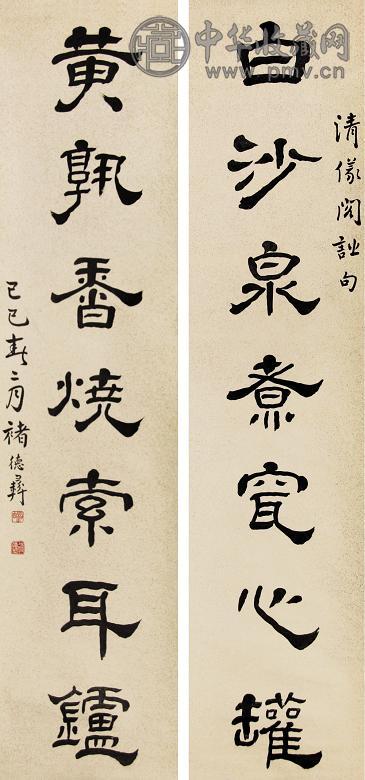 白沙泉煮心罐
清儀閣句
黄孰香燒索耳鑪
己巳春二月褚德彝
中华收藏网
www.pmv.cn